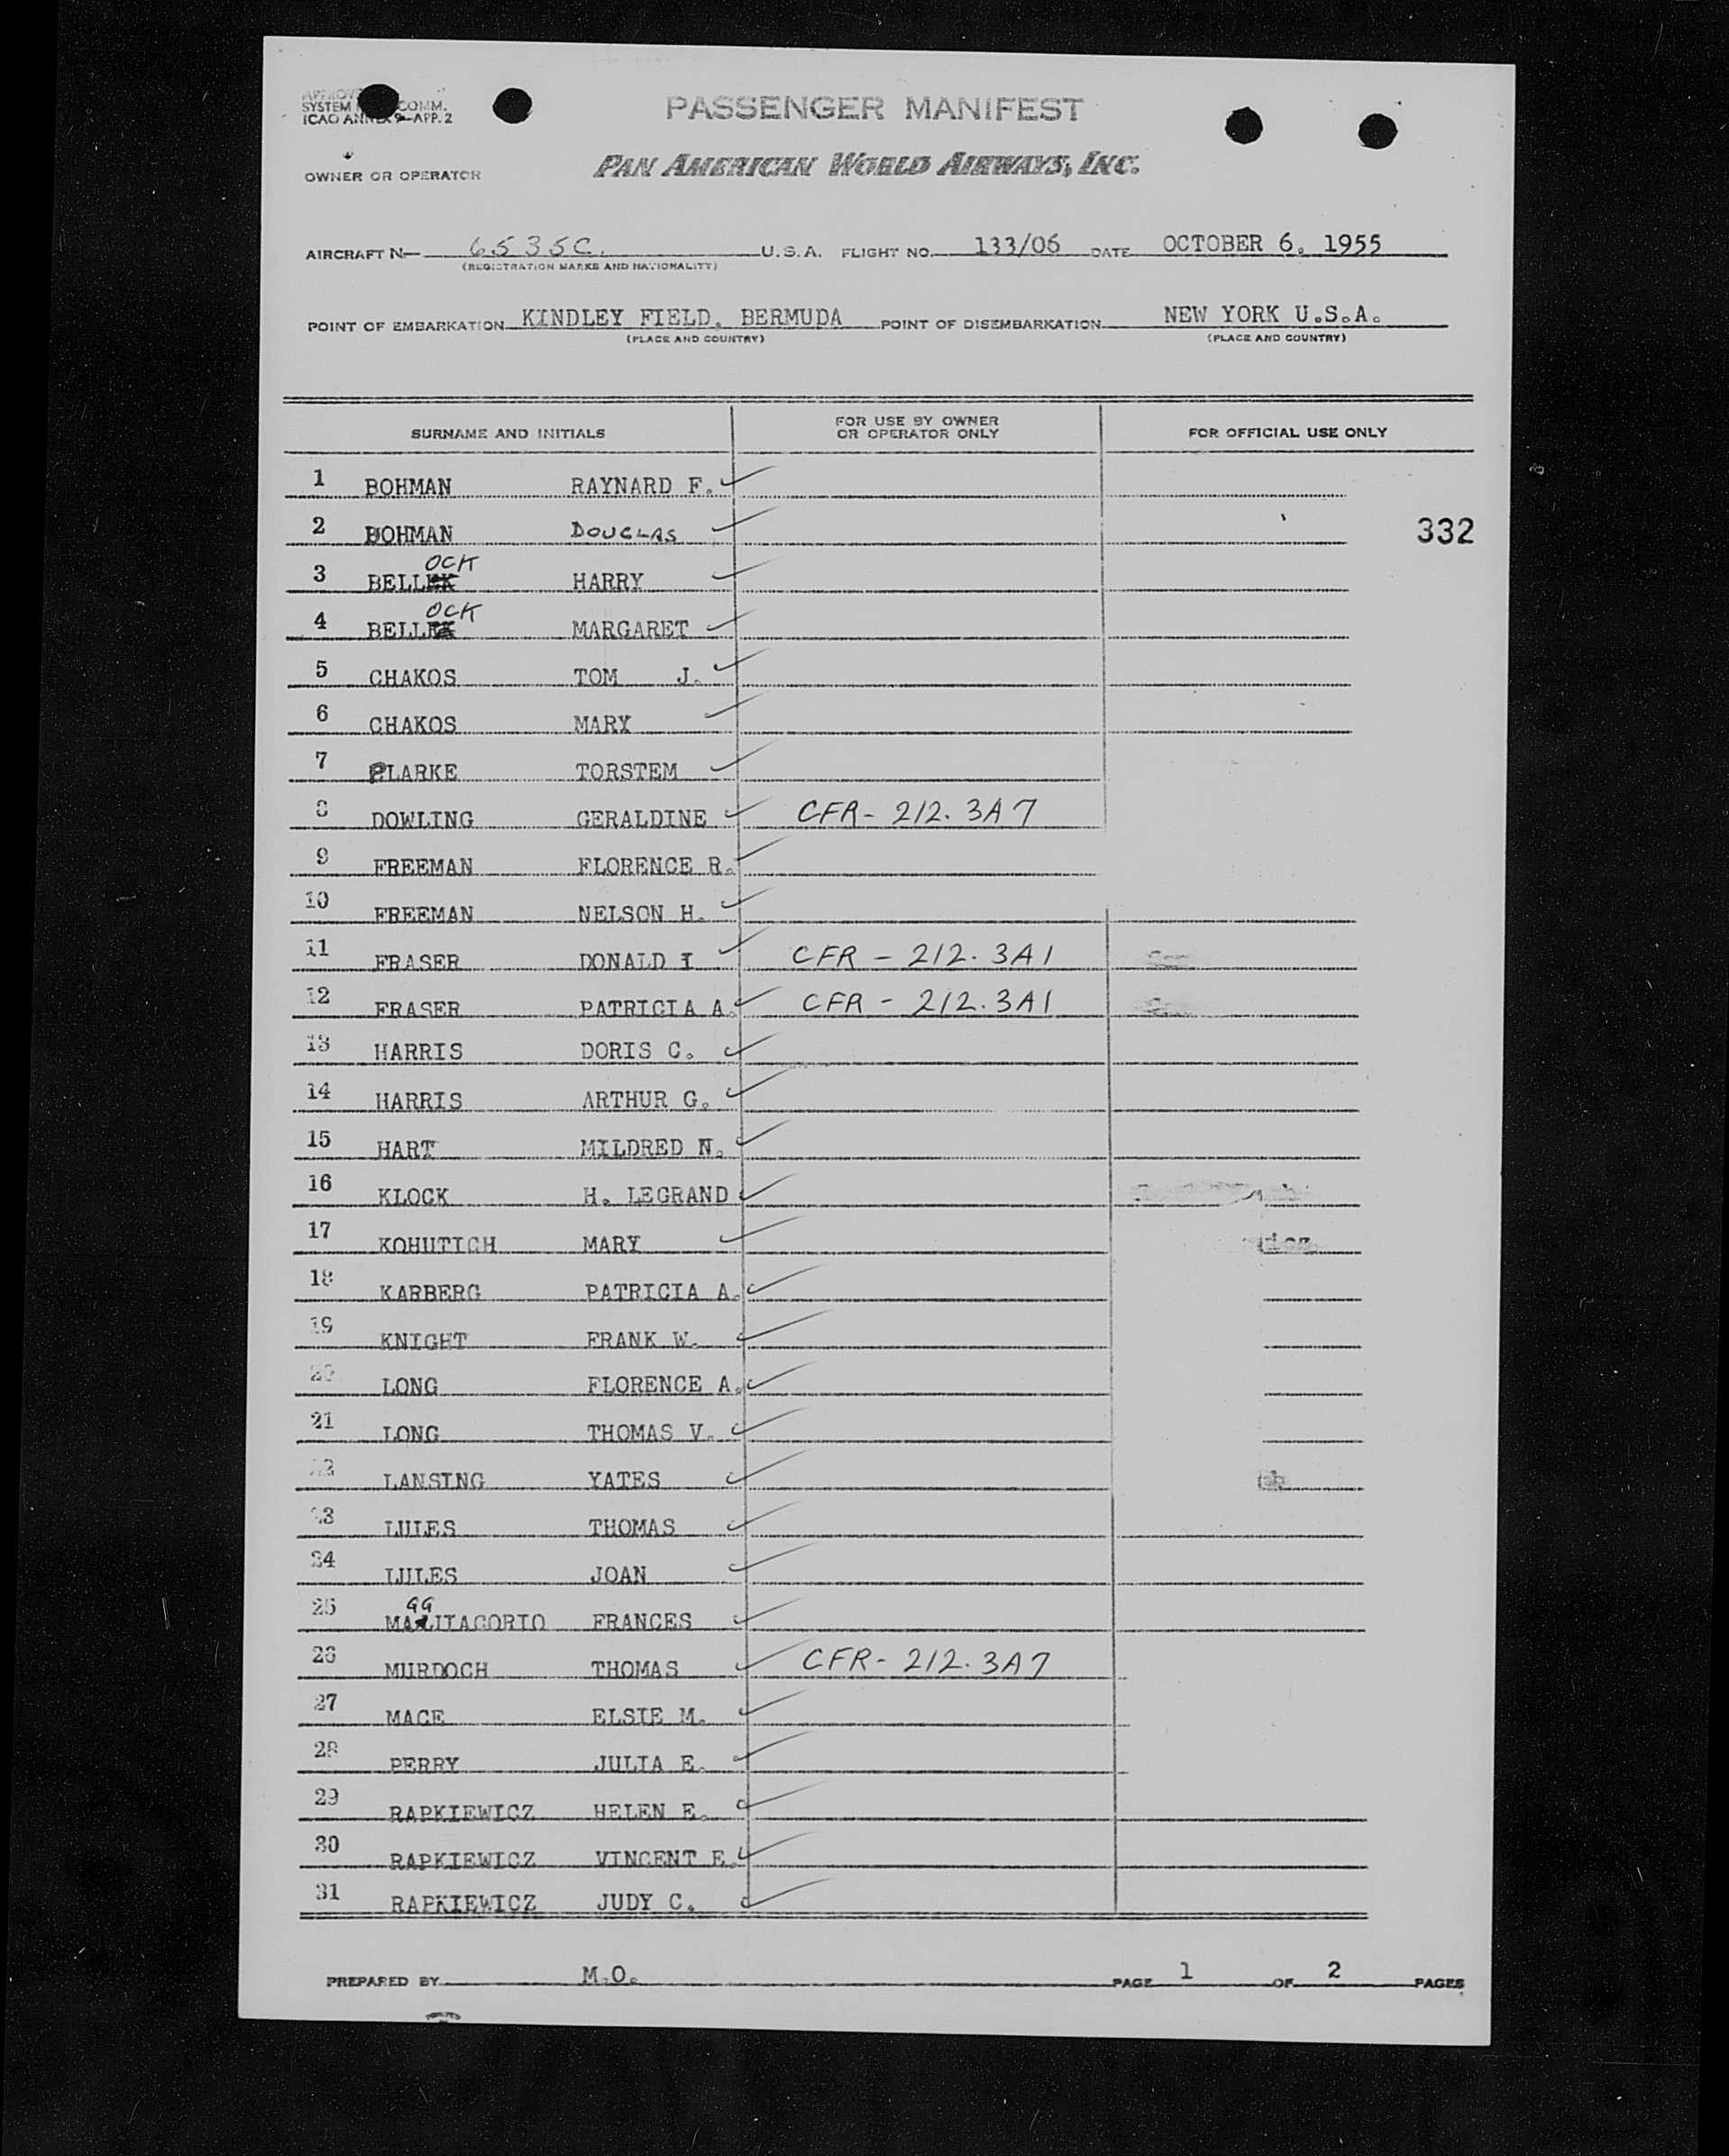 SYSTEM COMM.
ICAO ANNEX 9-APP. 2
PASSENGER MANIFEST
OWNER OR OPERATOR PAN AMERICAN WORLD AIRWAYS, INC.
AIRCRAFT N— 6535C. U.S.A. FLIGHT NO. 133/06 DATE OCTOBER 6. 1955
(REGISTRATION MARKS AND NATIONALITY)
POINT OF EMBARKATION KINDLEY FIELD, BERMUDA POINT OF DISEMBARKATION NEW YORK U.S.A.
(PLACE AND COUNTRY) (PLACE AND COUNTRY)
SURNAME AND INITIALS FOR USE BY OWNER OR OPERATOR ONLY FOR OFFICIAL USE ONLY
1 BOHMAN RAYNARD F.
2 BOHMAN DOUGLAS 332
3 BELLOCK HARRY
4 BELLOCK MARGARET
5 CHAKOS TOM J.
6 CHAKOS MARY
7 CLARKE TORSTEM
8 DOWLING GERALDINE CFR- 212.3A7
9 FREEMAN FLORENCE R.
10 FREEMAN NELSON H.
11 FRASER DONALD I CFR - 212.3A1
12 FRASER PATRICIA A. CFR - 212.3A1
13 HARRIS DORIS C.
14 HARRIS ARTHUR G.
15 HART MILDRED N.
16 KLOCK H. LEGRAND
17 KOHUTICH MARY
18 KARBERG PATRICIA A.
19 KNIGHT FRANK W.
20 LONG FLORENCE A.
21 LONG THOMAS V.
22 LANSING YATES
23 LULES THOMAS
24 LULES JOAN
25 MAGGITACORIO FRANCES
26 MURDOCH THOMAS CFR- 212.3A7
27 MACE ELSIE M.
28 PERRY JULIA E.
29 RAPKIEWICZ HELEN E.
30 RAPKIEWICZ VINCENT E.
31 RAPKIEWICZ JUDY C.
PREPARED BY M.O. PAGE 1 OF 2 PAGES